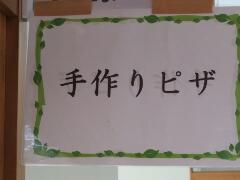 手作りピザ